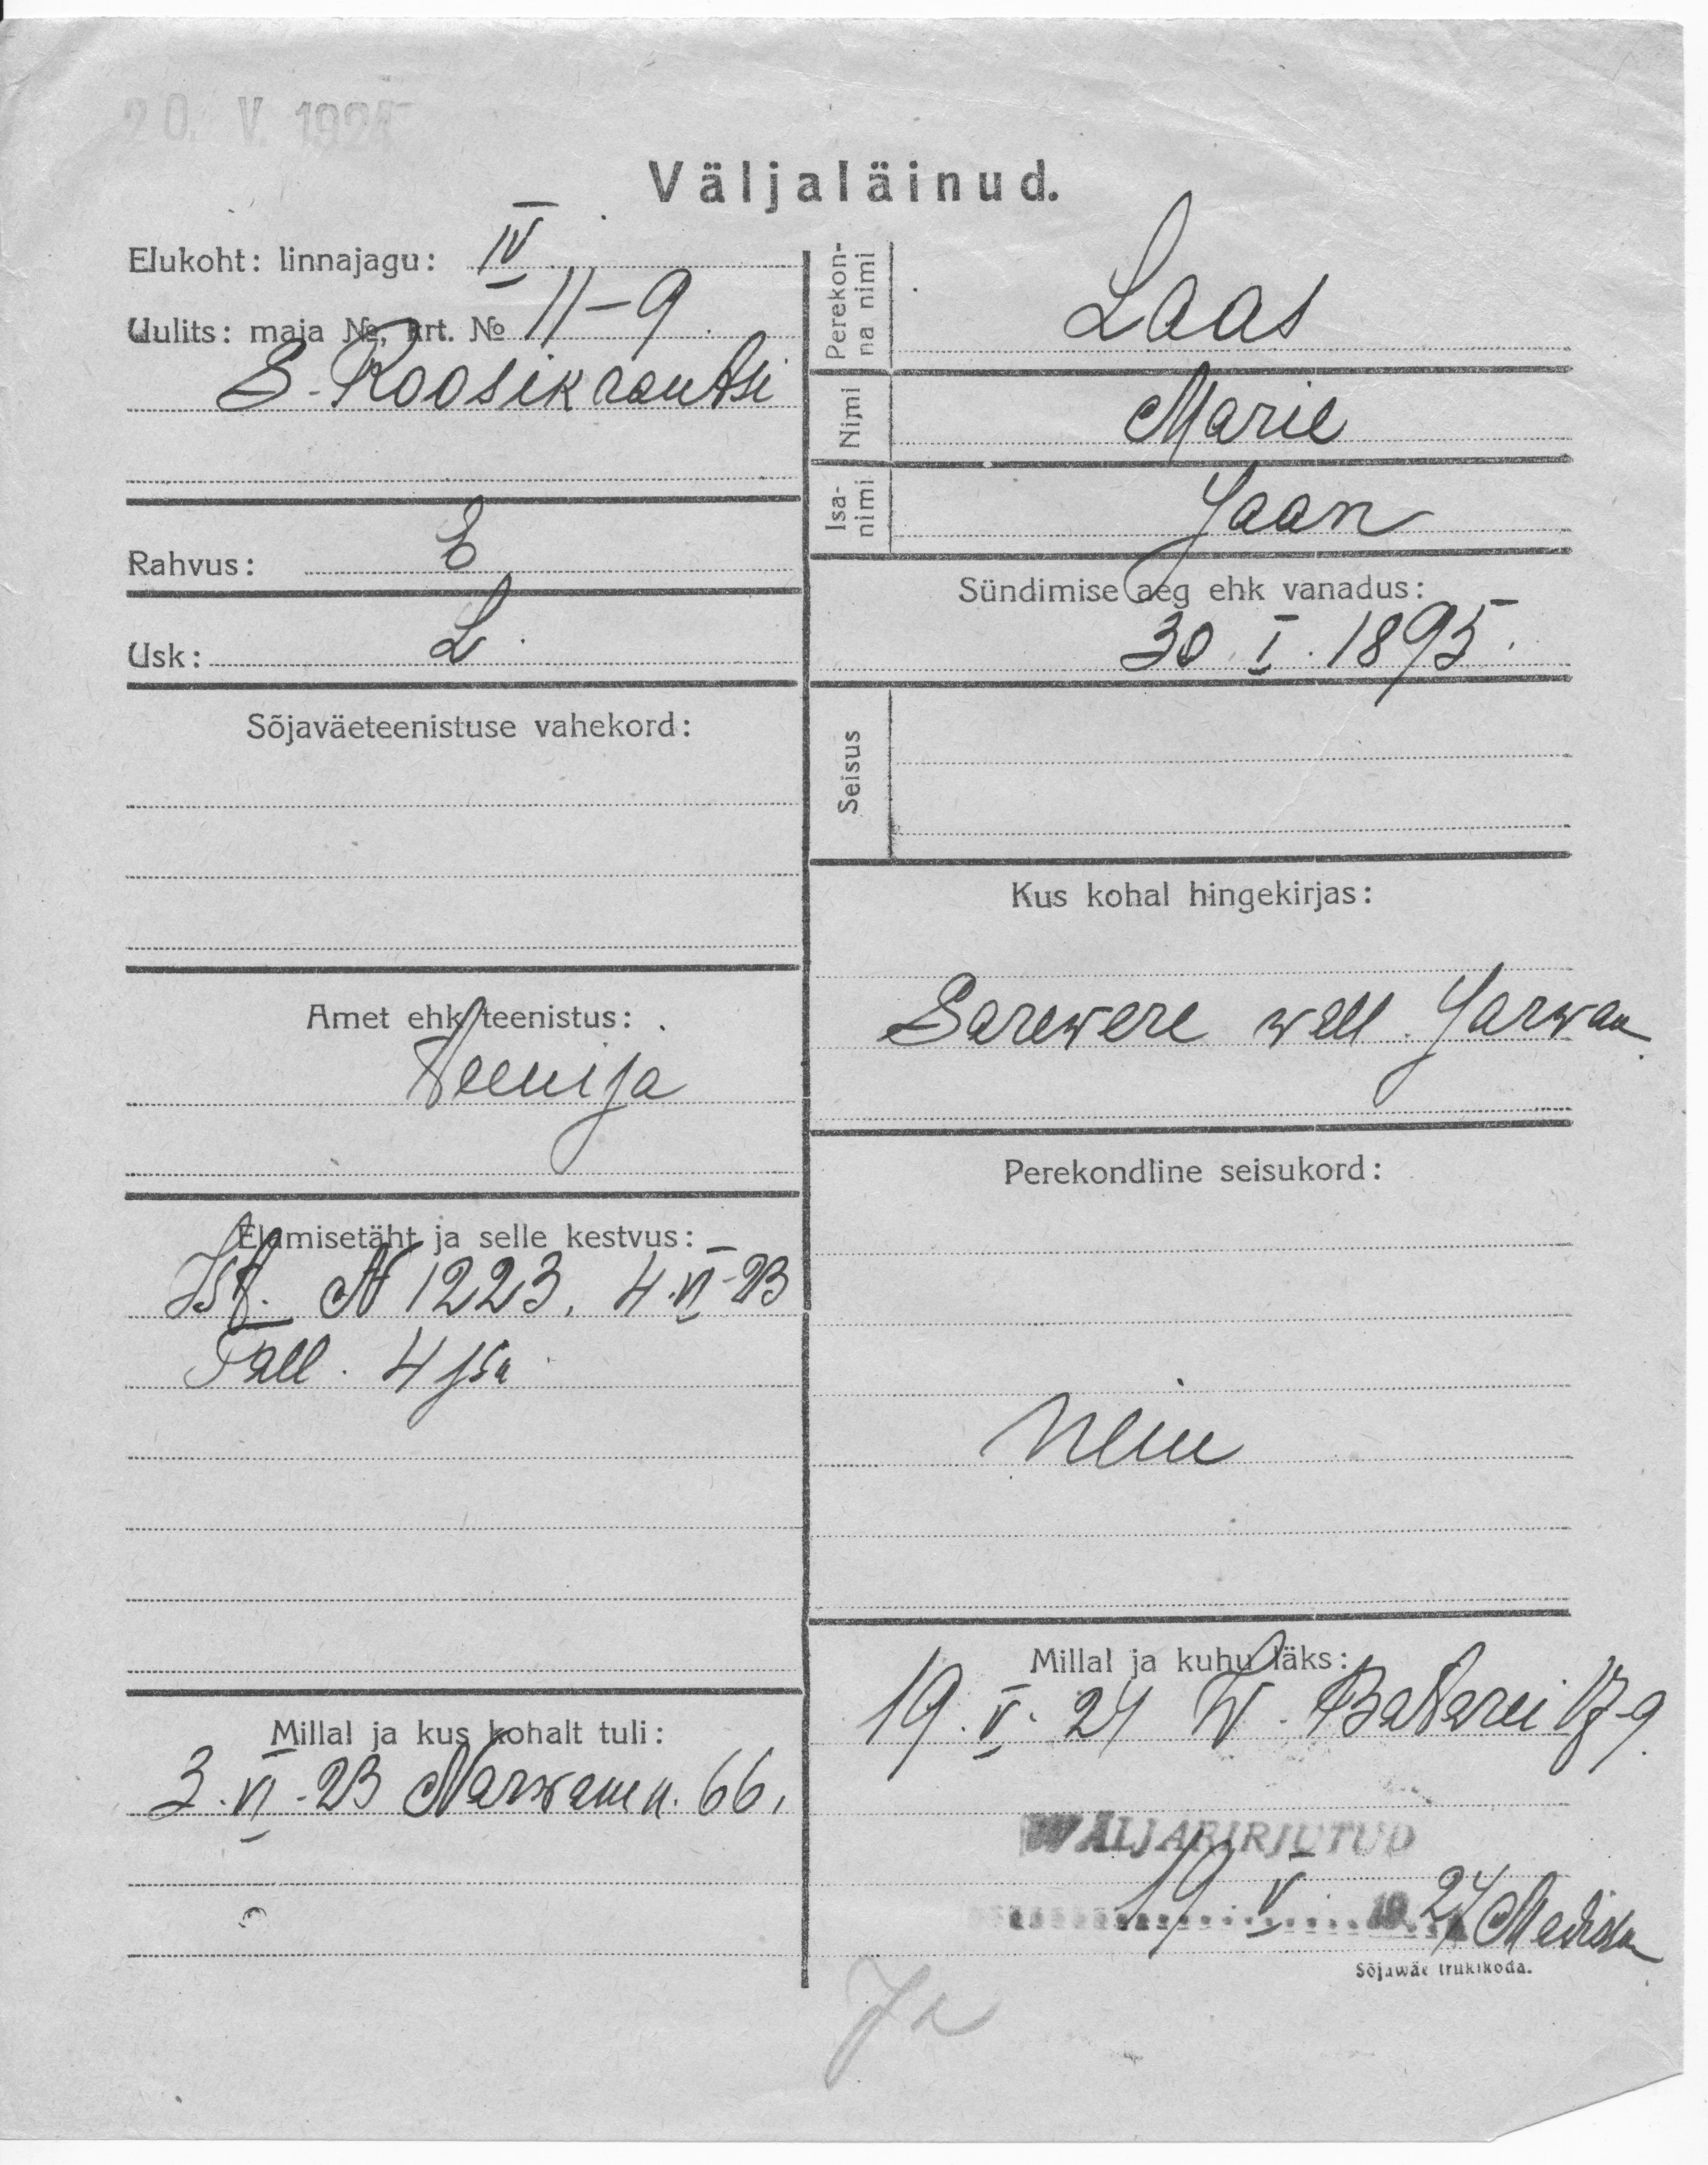 20. V. 1924
Väljaläinud.
Elukoht: linnajagu: IV
Uulits: maja №, krt. № 11-9
S. Roosikrantsi
Rahvus: E
Usk: L.
Sõjaväeteenistuse vahekord:
Amet ehk teenistus:
Teenija
Elamisetäht ja selle kestvus:
Ist. N 1223. 4.VI-23
Tall. 4 jsk
Millal ja kus kohalt tuli:
3.VI-23 Narwa mn. 66.
Perekon-
na nimi
Laas
Nimi
Marie
Isa-
nimi
Jaan
Sündimise aeg ehk vanadus:
30. I. 1895.
Seisus
Kus kohal hingekirjas:
Sarewere wall. Jarwam
Perekondline seisukord:
Neiu
Millal ja kuhu läks:
19. V. 24 W. Batarei 17-9
WÄLJAKIRJUTUD
19. V. 1924
Sõjawäe trükikoda.